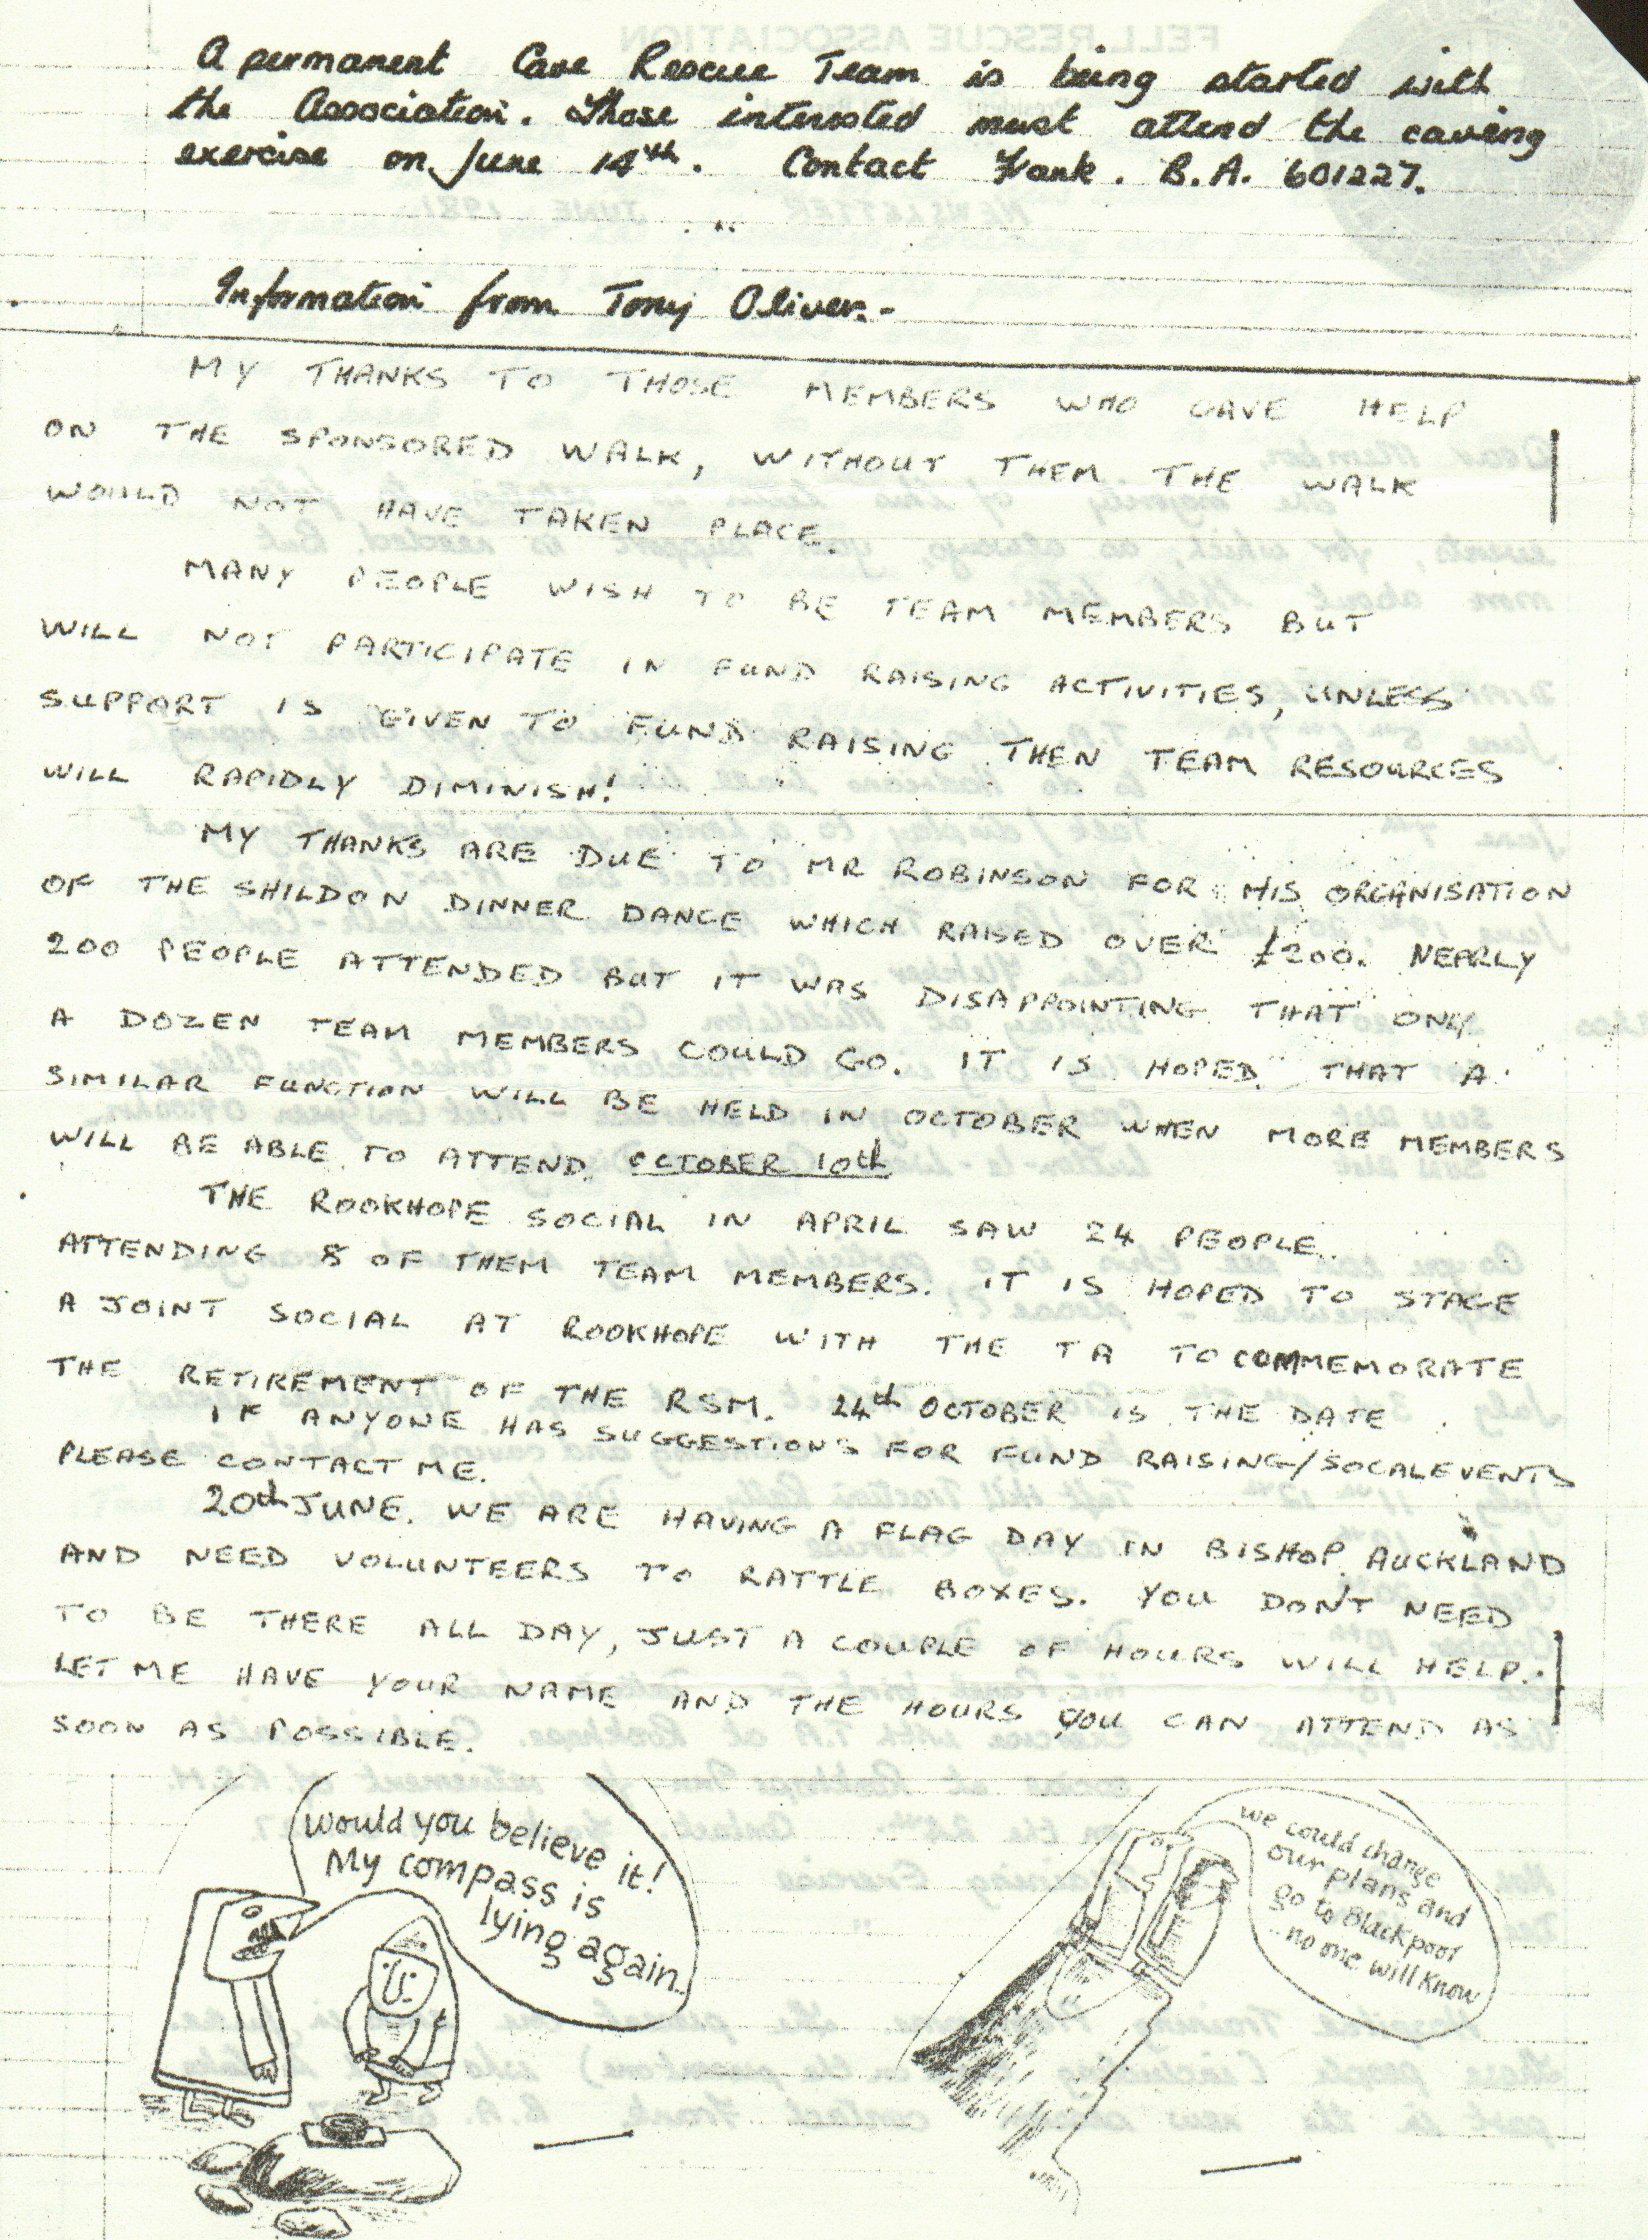 A permanent Cave Rescue Team is being started with
the Association. Those interested must attend the caving
exercise on June 14th. Contact Frank. B.A. 601227.
Information from Tony Oliver.-
MY THANKS TO THOSE MEMBERS WHO GAVE HELP
ON THE SPONSORED WALK, WITHOUT THEM THE WALK
WOULD NOT HAVE TAKEN PLACE.
MANY PEOPLE WISH TO BE TEAM MEMBERS BUT
WILL NOT PARTICIPATE IN FUND RAISING ACTIVITIES, UNLESS
SUPPORT IS GIVEN TO FUND RAISING THEN TEAM RESOURCES
WILL RAPIDLY DIMINISH!
MY THANKS ARE DUE TO MR ROBINSON FOR HIS ORGANISATION
OF THE SHILDON DINNER DANCE WHICH RAISED OVER £200. NEARLY
200 PEOPLE ATTENDED BUT IT WAS DISAPPOINTING THAT ONLY
A DOZEN TEAM MEMBERS COULD GO. IT IS HOPED THAT A
SIMILAR FUNCTION WILL BE HELD IN OCTOBER WHEN MORE MEMBERS
WILL BE ABLE TO ATTEND. OCTOBER 10th
THE ROOKHOPE SOCIAL IN APRIL SAW 24 PEOPLE
ATTENDING 8 OF THEM TEAM MEMBERS. IT IS HOPED TO STAGE
A JOINT SOCIAL AT ROOKHOPE WITH THE TA TO COMMEMORATE
THE RETIREMENT OF THE RSM. 24th OCTOBER IS THE DATE
IF ANYONE HAS SUGGESTIONS FOR FUND RAISING/SOCALEVENTS
PLEASE CONTACT ME.
20th JUNE. WE ARE HAVING A FLAG DAY IN BISHOP AUCKLAND
AND NEED VOLUNTEERS TO RATTLE BOXES. YOU DON'T NEED
TO BE THERE ALL DAY, JUST A COUPLE OF HOURS WILL HELP.
LET ME HAVE YOUR NAME AND THE HOURS YOU CAN ATTEND AS
SOON AS POSSIBLE.
Would you believe it!
My compass is
lying again.
We could change
our plans and
go to Blackpool
no one will know